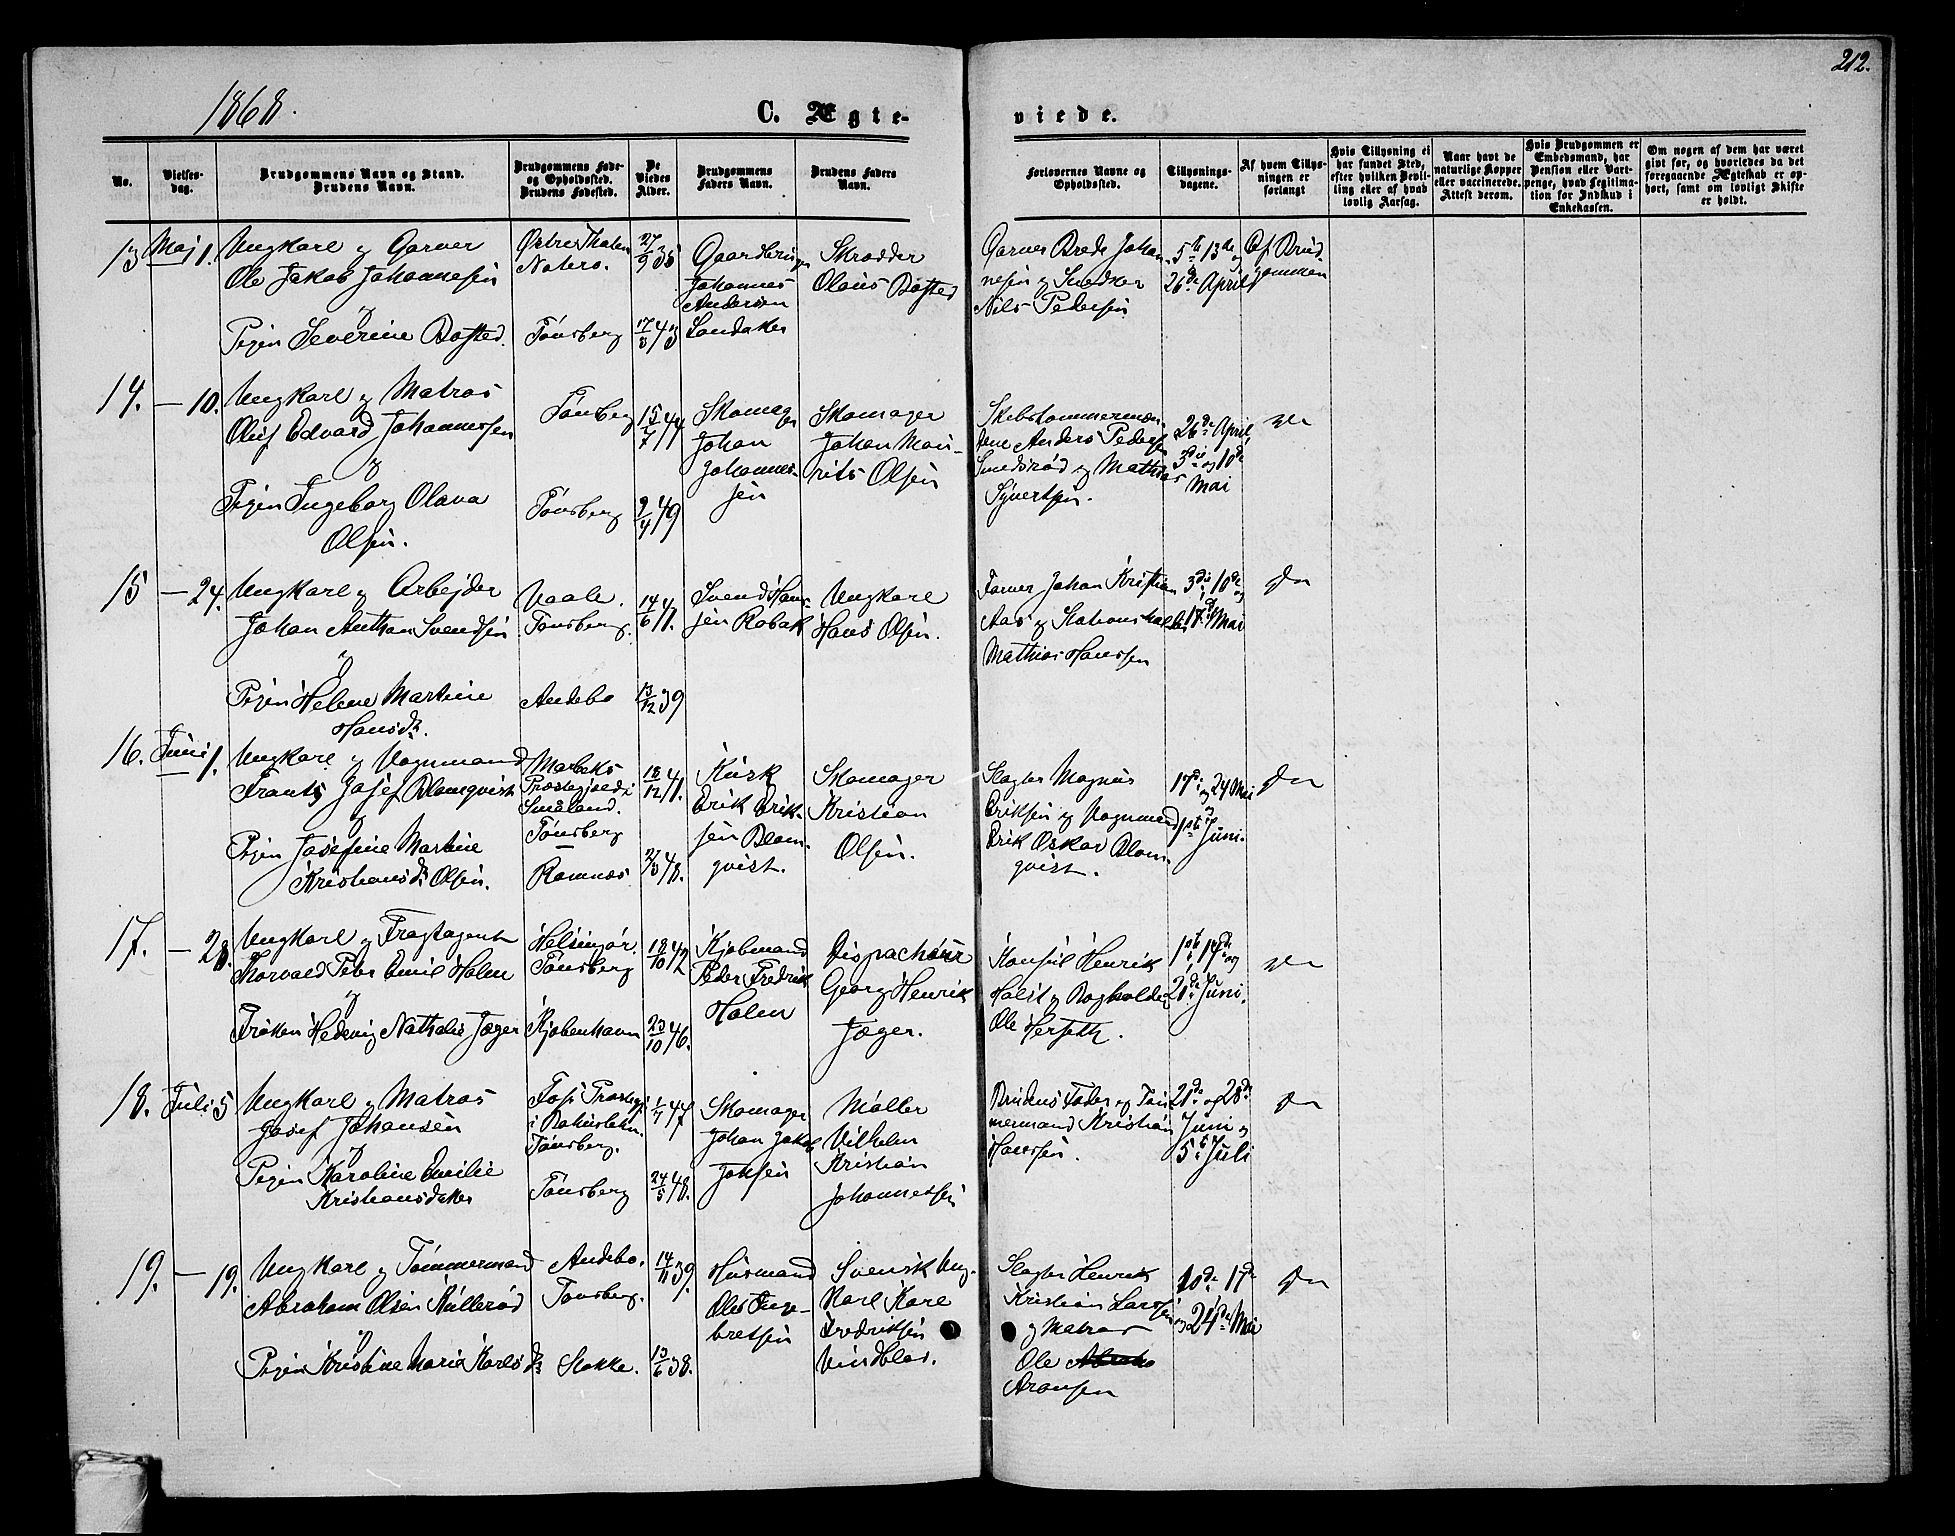 212.
1868.
C. Ægte-
viede.
No.
Vielses-
dag.
Brudgommens Navn og Stand.
Brudens Navn.
Brudgommens Føde-
og Opholdssted.
Brudens Fødested.
De
Viedes
Alder.
Brudgommens
Faders Navn.
Brudens Faders
Navn.
Forlovernes Navne og
Opholdssted.
Tillysnings-
dagene.
Af hvem Tillys-
ningen er
forlangt
Hvis Tillysning ei
har fundet Sted,
efter hvilken Bevil-
ling eller af hvad
lovlig Aarsag.
Naar havt de
naturlige Kopper
eller vaccinerede.
Attest derom.
Hvis Brudgommen er
Embedsmand, har
Pension eller Vart-
penge, hvad Legitima-
tion for Indskud i
Enkekassen.
Om nogen af dem har været
gift før, og hvorledes da det
foregaaende Ægteskab er op-
hørt, samt om lovligt Skifte
er holdt.
13 Maj 1.
Ungkarl og Garver
Ole Jakob Johannesen
og
Pigen Severine Bofted.
Nøterø.
Tønsberg
27/9 35
17/3 43
Gaardbruger
Johannes
Andersen
Sandaker
Skrædder
Olaus Bofted
Garver Brede Johan-
nesen og Snedker
Nils Pedersen
5te 13de og
26de April
Af Brud-
gommen
14. — 10.
Ungkarl og Matros
Oluf Edvard Johannessen
og
Pigen Ingeborg Olava
Olsen.
Tønsberg
Tønsberg
15/7 44
9/4 49
Skomager
Johan
Johannes-
sen
Skomager
Johan Mau-
rits Olsen
Skibstømmermæn-
dene Anders Peders
Smedsrød og Mathias
Syvertsen.
26de April,
3die og 10de
Mai
15 — 24.
Ungkarl og Arbejder
Johan Anthon Svendsen
og
Pigen Helene Martine
Hansdr.
Vaale.
Tønsberg.
Andebo
14/6 41.
13/12 39
Svend Han-
sen Rabak
Ungkarl
Hans Olsen.
Farver Johan Kristian
Aas og Stationsholder
Mathias Hanssen
3die 10de og
17de Mai
16. Juni 1.
Ungkarl og Vognmand
Frants Josef Blomqvist
og
Pigen Josefine Martine
Kristiansdr Olsen.
Præstegjæld i
Smaland.
Tønsberg
Ramnæs
18/12 41.
27/3 48.
Kusk
Erik Erik-
sen Blom-
qvist.
Skomager
Kristian
Olsen.
Slagter Magnus
Eriksen og Vognmand
Erik Oskar Blom-
qvist.
17de og 24 Mai
og
1ste Juni.
17. — 28.
Ungkarl og Fragtagent
Thorvald Peter Emil Holm
og
Frøken Hedevig Nathalie Jæger
Helsingør.
Tønsberg
Kjøbenhavn
18/10 42
23/10 46.
Kjøbmand
Peder Fredrik
Holm
Dispachør
Georg Henrik
Jæger.
Konsul Henrik
Holst og Bogholder
Ole Herseth.
1ste, 14de og
21de Juni.
18. Juli 5
Ungkarl og Matros
Josef Johansen
og
Pigen Karoline Emilie
Kristiansdatter
i Bahuslehn.
Tønsberg.
Tønsberg
1/7 47
24/5 48.
Skomager
Johan Jakob
Johsen
Møller
Vilhelm
Kristian
Johannessen
Brudens Fader og Tøm-
mermand Kristian
Hanssen.
21de og 28de
Juni og
5te Juli
19. — 19.
Ungkarl og Tømmermand
Abraham Olsen Kullerød
og
Pigen Kristine Marie Karlsdr
Andebo.
Tønsberg.
Stokke.
14/11 39.
13/6 38.
Husmand
Ole Inge-
bretsen
Svensk Ung-
karl Karl
Fredriksen
Vindblad.
Slagter Henrik
Kristian Larssen
og Matros
Ole
Aronsen
10de 17de
og 24de Mai